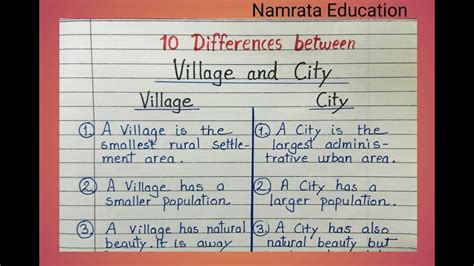 Namrata Education
10 Differences between
Village and City
Village
City
① A Village is the
smallest rural settle-
ment area.
② A Village has a
smaller population
③ A Village has natural
beauty. It is away
1. A City is the
largest adminis-
trative urban area.
2. A City has a
larger population.
3. A City has also
natural beauty but